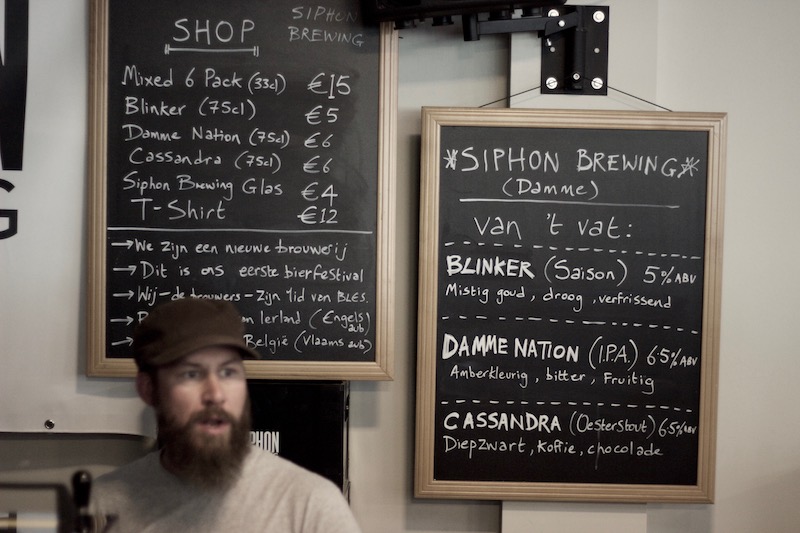 SHOP
SIPHON
BREWING
Mixed 6 Pack (33cl) €15
Blinker (75cl) €5
Damme Nation (75cl) €6
Cassandra (75cl) €6
Siphon Brewing Glas €4
T-Shirt €12
→ We zijn een nieuwe brouwerij
→ Dit is ons eerste bierfestival
→ Wij - de brouwers - zijn lid van BLES.
→ Ierland (Engels aub)
→ België (Vlaams aub)
*SIPHON BREWING*
(Damme)
van 't vat:
BLINKER (Saison) 5% ABV
Mistig goud, droog, verfrissend
DAMME NATION (I.P.A.) 6.5% ABV
Amberkleurig, bitter, Fruitig
CASSANDRA (Oesterstout) 6.5% ABV
Diepzwart, koffie, chocolade
PHON